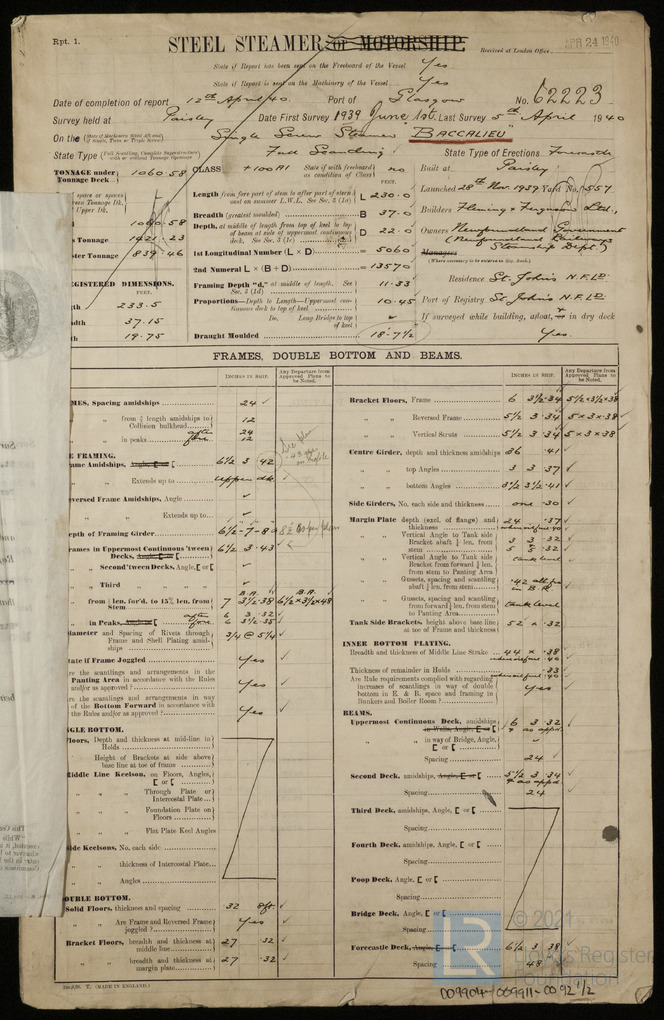 Rpt. 1.
STEEL STEAMER or MOTORSHIP.
Received at London Office APR 24 1940
State if Report has been sent on the Freeboard of the Vessel Yes
State if Report is sent on the Machinery of the Vessel Yes
Date of completion of report 12th April 40. Port of Glasgow No. 62223
Survey held at Paisley Date First Survey 1939 June 1st. Last Survey 5th April 1940
On the Single Screw Steamer "BACCALIEU"
State Type Full Scantling State Type of Erections Forecastle
TONNAGE under Tonnage Deck 1060.58
CLASS +100A1 State if with freeboard as condition of Class no
Built at Paisley
Launched 28th Nov. 1939 Yard No. 557
Builders Fleming & Ferguson Ltd.,
Owners Newfoundland Government
(Newfoundland Railways
Steamship Dept.)
Managers
(Where necessary to be entered in Reg. Book.)
Residence St. John's N.F.Ld
Port of Registry St. John's N.F.Ld
If surveyed while building, afloat, or in dry dock
Yes.
FEET.
Length from fore part of stem to after part of stern post on summer L.W.L. See Sec. 3 (1a) L 230.0
Breadth (greatest moulded) B 37.0
Depth, at middle of length from top of keel to top of beam at side of uppermost continuous deck. See Sec. 3 (1c) D 22.0
1st Longitudinal Number (L × D) = 5060
2nd Numeral L × (B + D) = 13570
Framing Depth "d," at middle of length. See Sec. 3 (1d) 11.33
Proportions—Depth to Length—Uppermost continuous deck to top of keel 10.45
Do. Long Bridge to top of keel
Draught Moulded 18'-7½
1060.58
Tonnage 1421.23
ster Tonnage 839.46
REGISTERED DIMENSIONS.
FEET.
gth 233.5
adth 37.15
th 19.75
FRAMES, DOUBLE BOTTOM AND BEAMS.
INCHES IN SHIP. Any Departure from Approved Plans to be Noted.
MES, Spacing amidships 24
from ⅗ length amidships to Collision bulkhead 12
in peaks after 24 fore 12
E FRAMING.
rame Amidships, Angle 6½ 3 .42
Extends up to upper dk
eversed Frame Amidships, Angle
Extends up to
epth of Framing Girder
rames in Uppermost Continuous 'tween Decks, Angle 6½ 3 .43
Second 'tween Decks, Angle
Third
from ⅗ len. for'd. to 15% len. from Stem B.A. 7 3½ .38 B.A. 6½×3½×.48
in Peaks, Angle after 6 3 .32 fore 6 3½ .35
iameter and Spacing of Rivets through Frame and Shell Plating amidships 3/4 @ 5¼
tate if Frame Joggled Yes
re the scantlings and arrangements in the Panting Area in accordance with the Rules and/or as approved? Yes
re the scantlings and arrangements in way of the Bottom Forward in accordance with the Rules and/or as approved? Yes
NGLE BOTTOM.
loors, Depth and thickness at mid-line in Holds
Height of Brackets at side above base line at toe of frame
iddle Line Keelson, on Floors, Angles,
Through Plate or Intercostal Plate
Foundation Plate on Floors
Flat Plate Keel Angles
ide Keelsons, No. each side
thickness of Intercostal Plate
Angles
OUBLE BOTTOM.
Solid Floors, thickness and spacing .32 8ft.
Are Frame and Reversed Frame joggled? Yes
Bracket Floors, breadth and thickness at middle line 27 .32
breadth and thickness at margin plate 27 .32
INCHES IN SHIP. Any Departure from Approved Plans to be Noted.
Bracket Floors, Frame 6 3½ .34 5½×3½×.38
Reversed Frame 5½ 3 .34 5×3×.38
Vertical Struts 5½ 3 .34 5×3×.38
Centre Girder, depth and thickness amidships 36 .41
top Angles 3 3 .37
bottom Angles 3½ 3½ .41
Side Girders, No. each side and thickness one .30
Margin Plate depth (excl. of flange) and thickness 24 .37
Vertical Angle to Tank side Bracket abaft ¼ len. from stem 3 3 .32
Vertical Angle to Tank side Bracket from forward ¼ len. from stem to Panting Area tank level
Gussets, spacing and scantling abaft ¼ len. from stem
Gussets, spacing and scantling from forward ¼ len. from stem to Panting Area tank level
Tank Side Brackets, height above base line at toe of Frame and thickness 52 × .32
INNER BOTTOM PLATING.
Breadth and thickness of Middle Line Strake 44 × .38
Thickness of remainder in Holds .33
Are Rule requirements complied with regarding increases of scantlings in way of double bottom in E. & B. space and framing in Bunkers and Boiler Room? Yes
BEAMS.
Uppermost Continuous Deck, amidships 6 3 .32
in Wells, Angle & as appd.
in way of Bridge, Angle,
Spacing 24
Second Deck, amidships, Angle 5½ 3 .34 & as appd.
Spacing 24
Third Deck, amidships, Angle,
Spacing
Fourth Deck, amidships, Angle,
Spacing
Poop Deck, Angle,
Spacing
Bridge Deck, Angle,
Spacing
Forecastle Deck, Angle 6½ 3 .38
Spacing 48
(MADE IN ENGLAND.)
© 2021
Lloyd's Register
Foundation
LR
009904-009911-0092 1/2